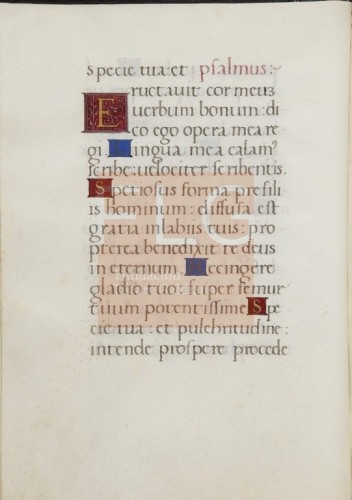 specie tua: et psalmus:
Eructauit cor meuz
uerbum bonum: di
co ego opera mea re
gi Lingua mea calam9
scribe: uelociter scribentis.
Speciosus forma pre fili
is hominum: diffusa est
gratia in labiis tuis: pro
pterea benedixit te deus
in eternum. Accingere
gladio tuo: super femur
tuum potentissime Spe
cie tua: et pulchritudine:
intende prospere procede